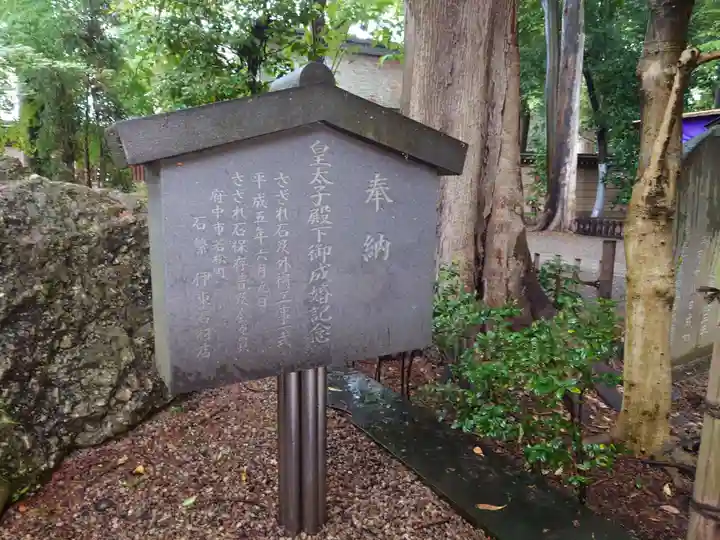 奉納
皇太子殿下御成婚記念
さざれ石及外荷工事一式
平成五年六月九日
さざれ石保存会
府中市若松町
石繁 伊東石材店